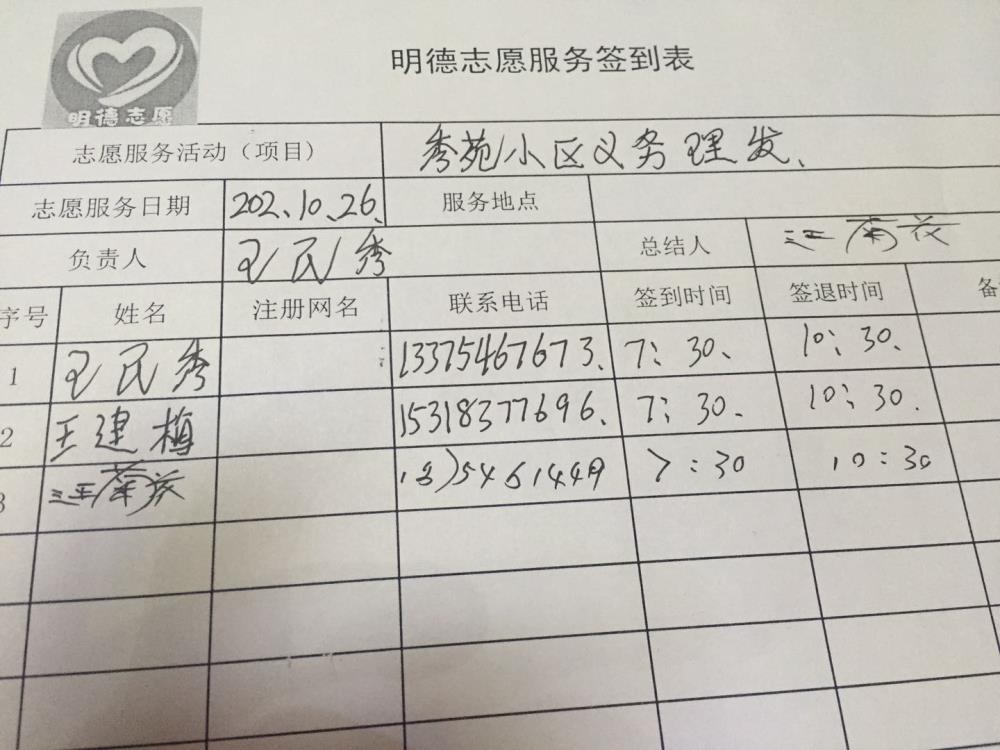 明德志愿
明德志愿服务签到表
志愿服务活动（项目） 秀苑小区义务理发、
志愿服务日期 202、10、26、 服务地点
负责人 王民秀 总结人
序号 姓名 注册网名 联系电话 签到时间 签退时间 备
1 王民秀 13375467673、 7：30、 10：30、
2 王建梅 15318377696、 7：30、 10：30、
3 7：30 10：30